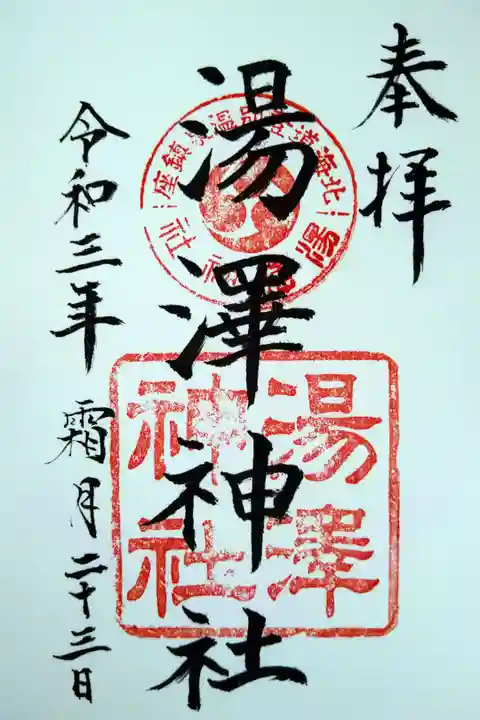 奉拝
湯澤神社
令和三年 霜月二十三日
湯澤
神社
北海道
温泉鎮座
神社